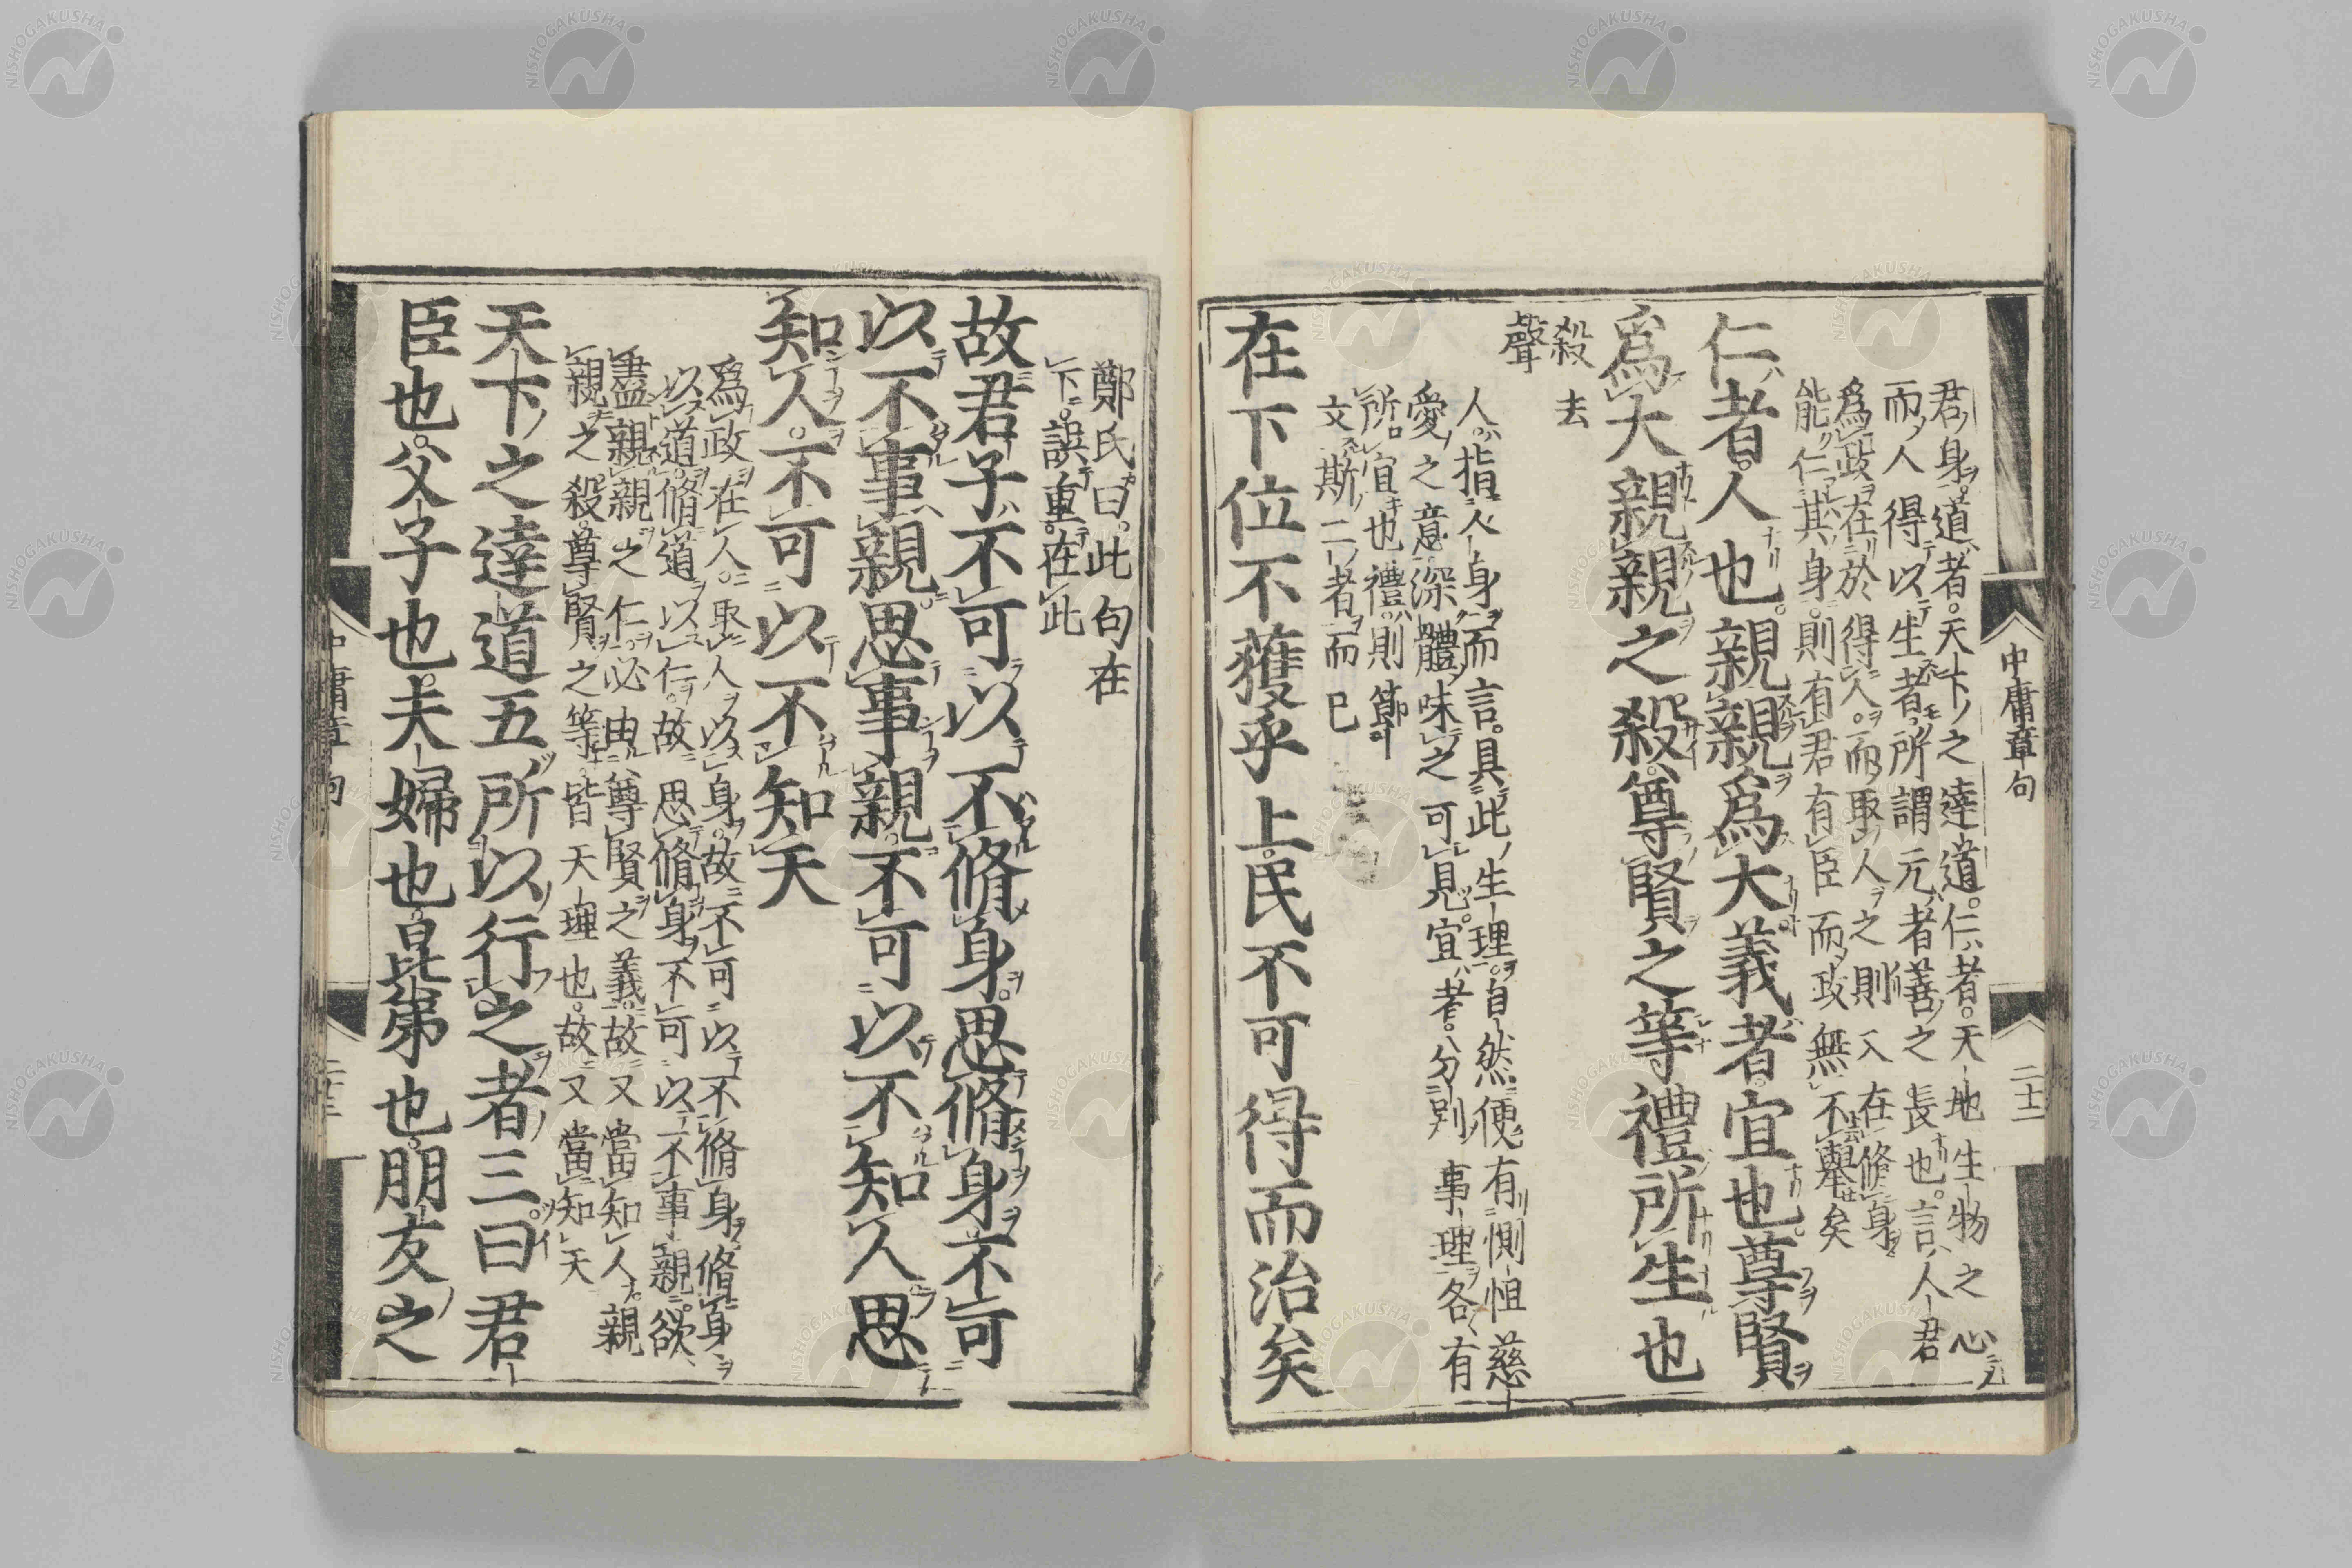 中庸章句
二十二
君身。道者。天下之達道。仁者。天地生物之心
而人得以生者。所謂元者善之長也。言人君
爲政在於得人。而取人之則又在脩身
能仁其身。則有君有臣而政無不舉矣
仁者。人也。親親爲大義者宜也。尊賢
爲大親親之殺。尊賢之等禮所生也
殺去
聲
人。指人身而言。具此生理。自然便有惻怛慈
愛之意。深體味之可見。宜者。分別事理各有
所宜也禮。則節
文斯二者而已
在下位不獲乎上民不可得而治矣
鄭氏曰。此句在
下。誤重。在此
故君子不可以不脩身。思脩身不可
以不事親。思事親。不可以不知人思
知人。不可以不知天
爲政在人。取人以身。故不可以不脩身。脩身
以道。脩道以仁。故思脩身不可以不事親。欲
盡親親之仁。必由尊賢之義。故又當知人。親
親之殺。尊賢之等。皆天理也。故又當知天
天下之達道五所以行之者三。曰君
臣也。父子也。夫婦也。昆弟也。朋友之
中庸章句